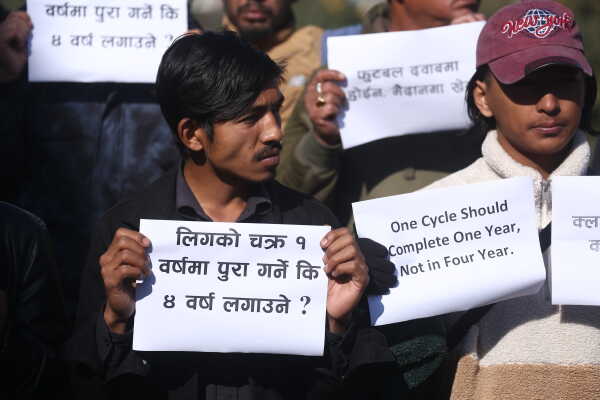 वर्षमा पुरा गर्ने कि
४ वर्ष लगाउने ?
फुटबल दवाबमा
होईन, मैदानमा
New York
लिगको चक्र १
वर्षमा पुरा गर्ने कि
४ वर्ष लगाउने ?
One Cycle Should
Complete One Year,
Not in Four Year.